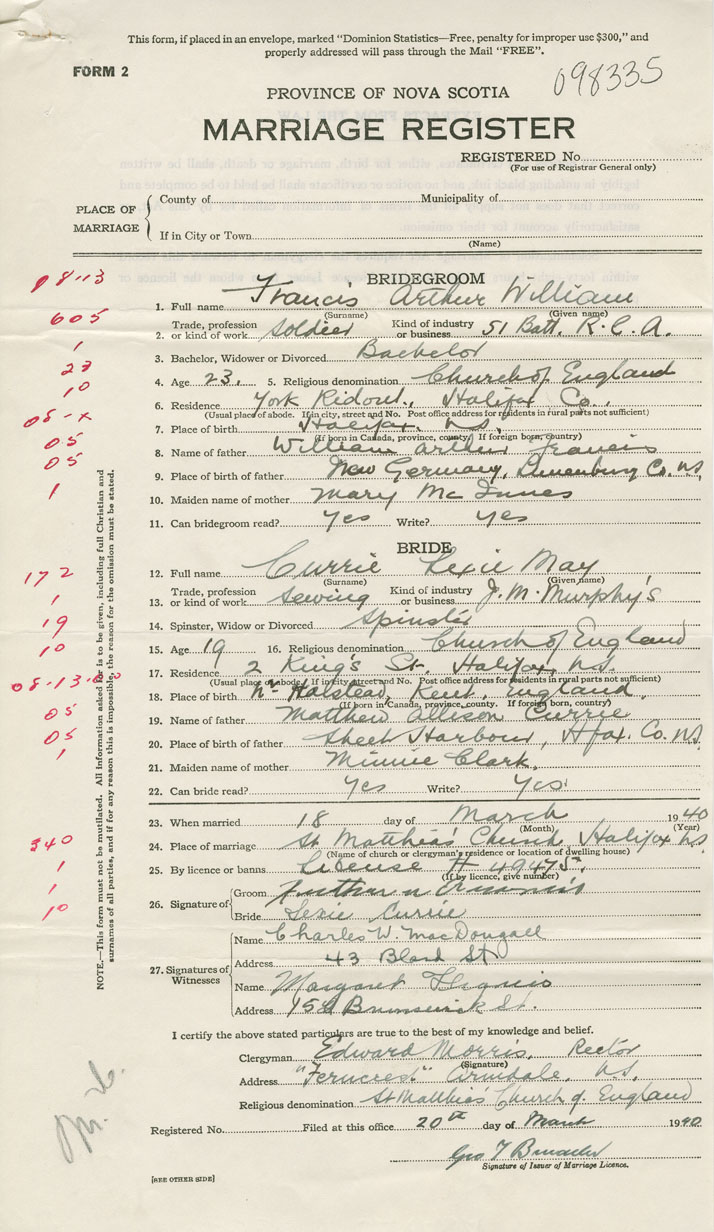 This form, if placed in an envelope, marked "Dominion Statistics—Free, penalty for improper use $300," and
properly addressed will pass through the Mail "FREE".
FORM 2
098335
PROVINCE OF NOVA SCOTIA
MARRIAGE REGISTER
REGISTERED No.
(For use of Registrar General only)
PLACE OF MARRIAGE
County of Municipality of
If in City or Town
(Name)
BRIDEGROOM
1. Full name Francis Arthur William
(Surname) (Given name)
605
2. Trade, profession or kind of work Soldier Kind of industry or business 51 Batt. R.C.A.
1
3. Bachelor, Widower or Divorced Bachelor
23
4. Age 23. 5. Religious denomination Church of England
10
6. Residence York Ridout, Halifax Co.
(Usual place of abode. If in city, street and No. Post office address for residents in rural parts not sufficient)
7. Place of birth Halifax. N.S.
(If born in Canada, province, county. If foreign born, country)
05
8. Name of father William Arthur Francis
05
9. Place of birth of father New Germany, Lunenburg Co. N.S.
1
10. Maiden name of mother Mary McInnes
11. Can bridegroom read? Yes Write? Yes
BRIDE
172
12. Full name Currie Lexie May
(Surname) (Given name)
1
13. Trade, profession or kind of work Sewing Kind of industry or business J.M. Murphy's
19
14. Spinster, Widow or Divorced Spinster
10
15. Age 19 16. Religious denomination Church of England
17. Residence 2 King's St. Halifax, N.S.
(Usual place of abode. If in city street and No. Post office address for residents in rural parts not sufficient)
18. Place of birth Nr Halstead, Kent, England.
(If born in Canada, province, county. If foreign born, country)
05
19. Name of father Matthew Allison Currie
05
20. Place of birth of father Sheet Harbour, Hfax. Co. N.S.
1
21. Maiden name of mother Minnie Clark.
22. Can bride read? Yes Write? Yes
23. When married 18 day of March 1940
(Month) (Year)
340
24. Place of marriage St Matthias' Church, Halifax N.S.
(Name of church or clergyman's residence or location of dwelling house)
1
25. By licence or banns License #
(If by licence, give number)
1
26. Signature of
Groom
10
Bride Lexie Currie
27. Signatures of Witnesses
Name Charles W. MacDougall
Address 43 Bland St
Name Margaret
Address Brunswick St.
NOTE.—This form must not be mutilated. All information asked for is to be given, including full Christian and
surnames of all parties, and if for any reason this is impossible, the reason for the omission must be stated.
I certify the above stated particulars are true to the best of my knowledge and belief.
Clergyman Edward Morris, Rector
(Signature)
Address Armdale, N.S.
Religious denomination St Matthias' Church of England
Registered No. Filed at this office 20th day of March 1940
Geo T
Signature of Issuer of Marriage Licence.
[SEE OTHER SIDE]